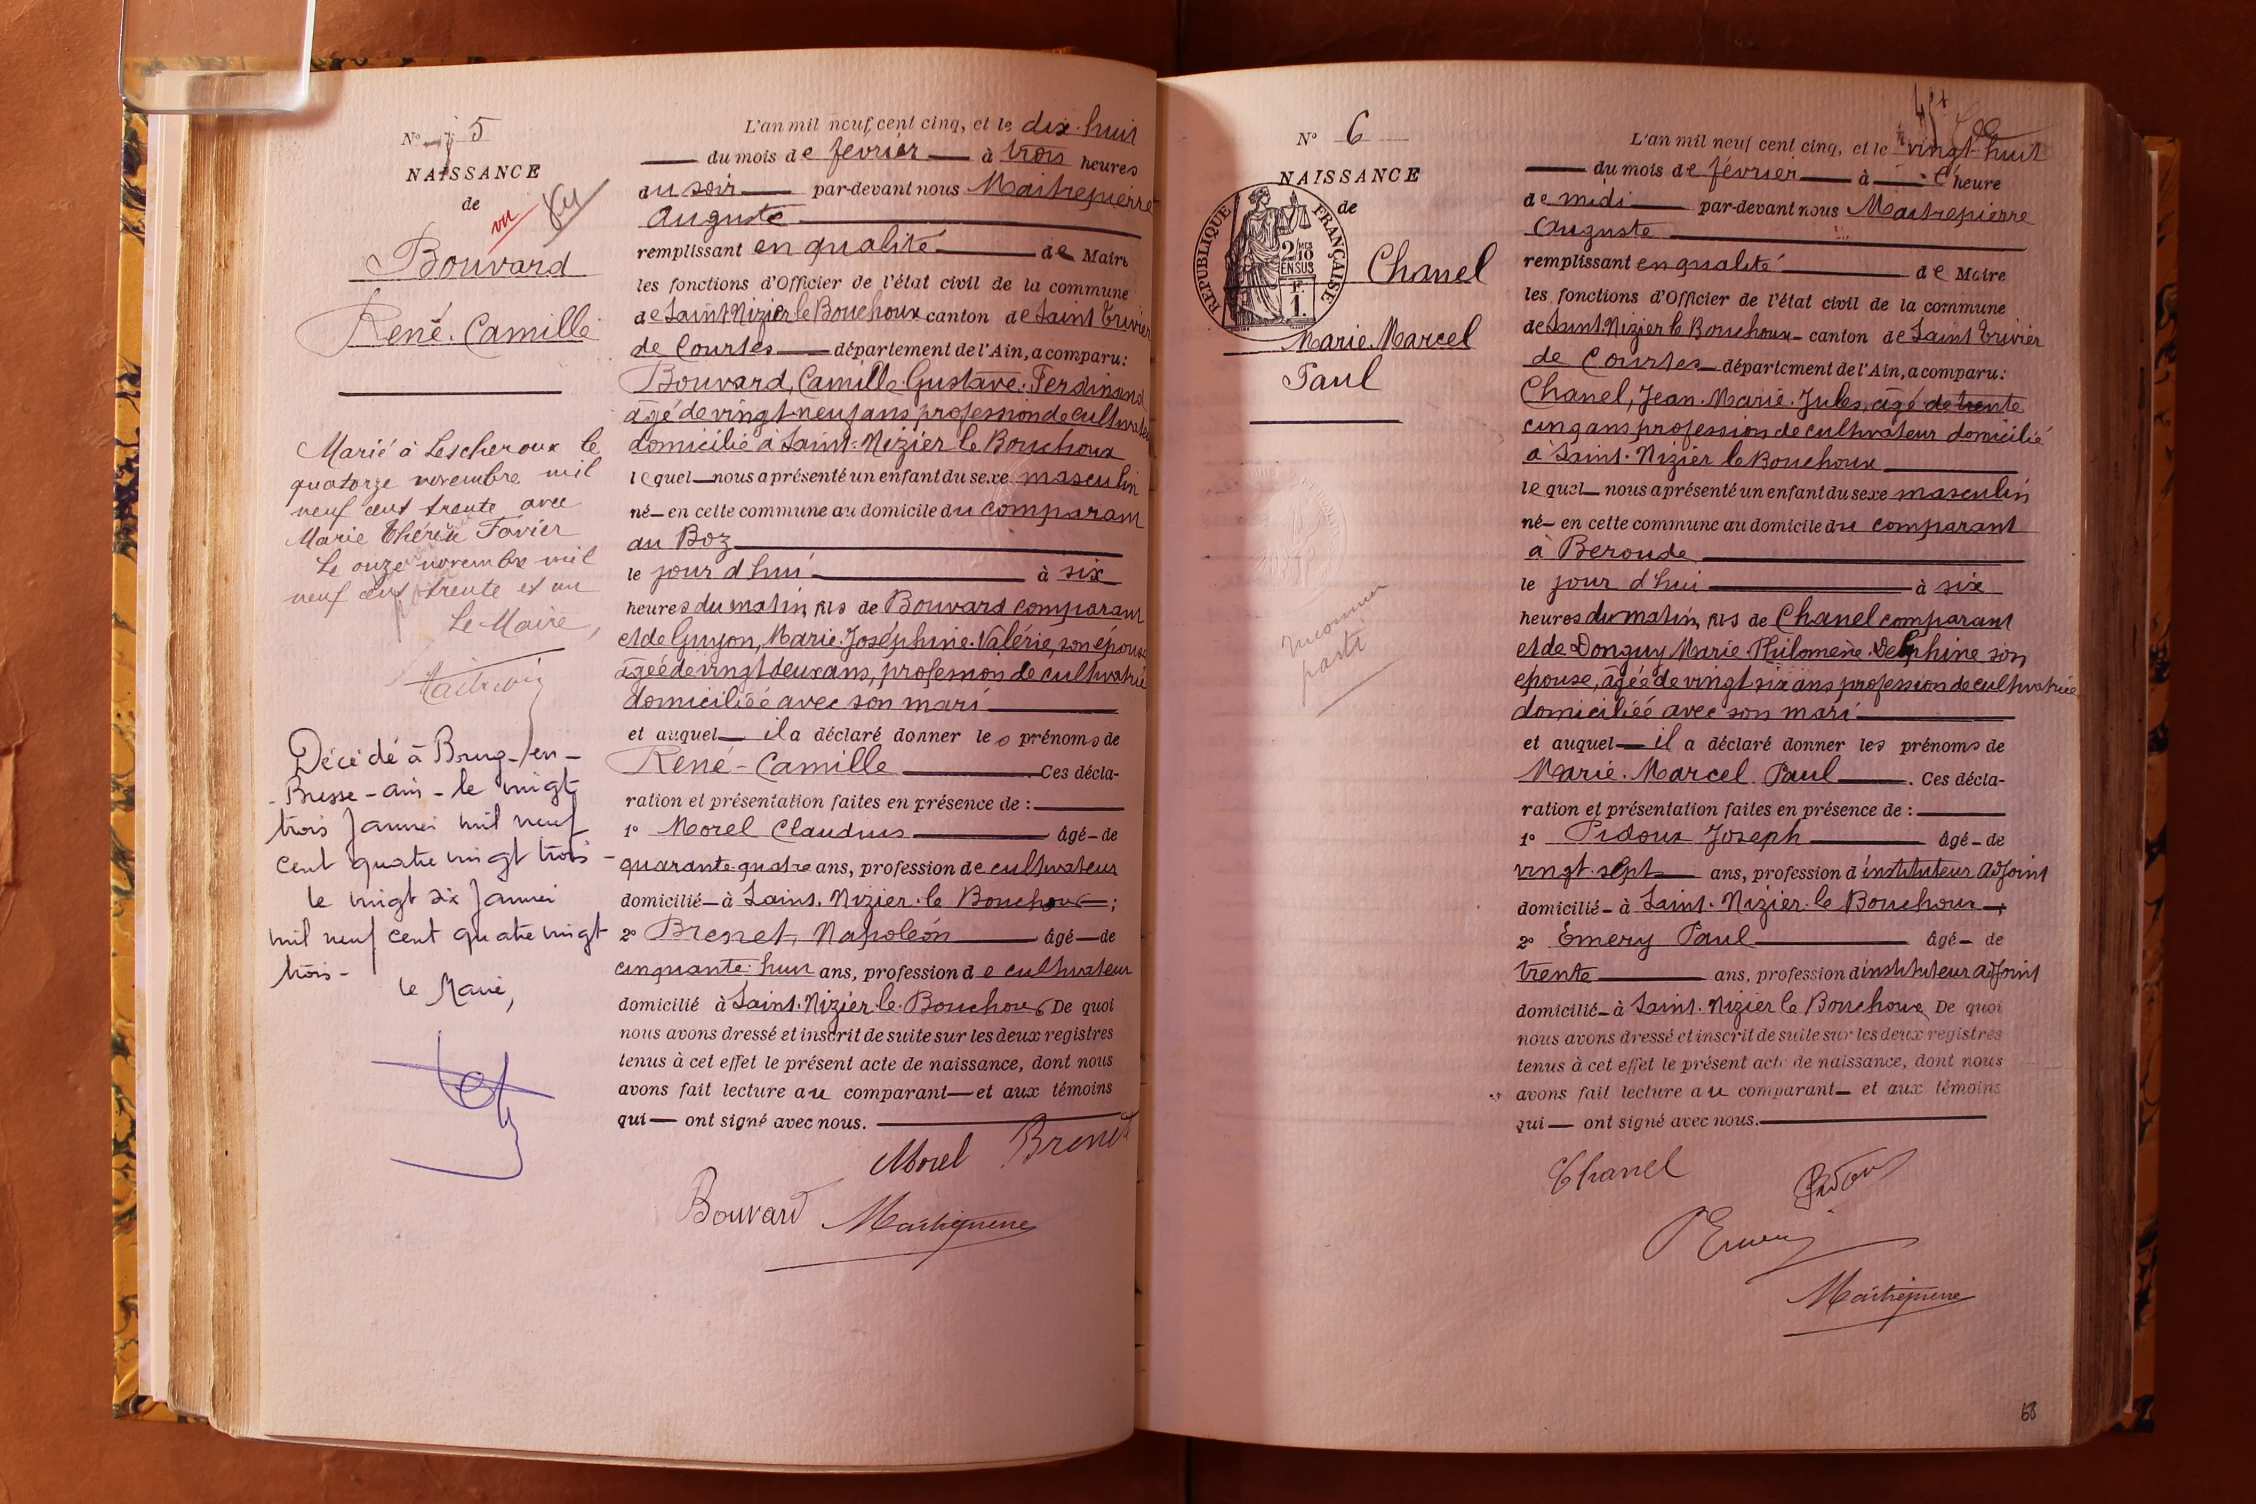 N° 5
NAISSANCE
de
vu
Bouvard
René-Camille
Marié à Lescheroux le
quatorze novembre mil
neuf cent trente avec
Marie Thérèse Favier
Le onze novembre mil
neuf cent trente et un
Le Maire,
Décédé à Bourg-en-
-Bresse-ain-le vingt
trois Janvier mil neuf
cent quatre vingt trois-
le vingt six Janvier
mil neuf cent quatre vingt
trois-
le Maire,
L'an mil neuf cent cinq, et le dix-huit
du mois de février à trois heures
du soir par-devant nous Maitrepierre
Auguste
remplissant en qualité de Maire
les fonctions d'Officier de l'état civil de la commune
de Saint Nizier le Bouchoux canton de Saint Trivier
de Courtes département de l'Ain, a comparu:
Bouvard, Camille-Gustave-Ferdinand
âgé de vingt-neuf ans profession de cultivateur
domicilié à Saint-Nizier le Bouchoux
lequel nous a présenté un enfant du sexe masculin
né en cette commune au domicile du comparant
au Boz
le jour d'hui à six
heures du matin, fils de Bouvard comparant
et de Guyon, Marie-Joséphine-Valérie, son épouse
âgée de vingt deux ans, profession de cultivatrice
domiciliée avec son mari
et auquel il a déclaré donner les prénoms de
René-Camille Ces décla-
ration et présentation faites en présence de :
1° Morel Claudius âgé de
quarante-quatre ans, profession de cultivateur
domicilié à Saint-Nizier-le Bouchoux ;
2° Brenet, Napoléon âgé de
cinquante-huit ans, profession de cultivateur
domicilié à Saint-Nizier-le-Bouchoux De quoi
nous avons dressé et inscrit de suite sur les deux registres
tenus à cet effet le présent acte de naissance, dont nous
avons fait lecture au comparant et aux témoins
qui ont signé avec nous.
Morel Brenet
Bouvard Maitrepierre
N° 6
NAISSANCE
de
RÉPUBLIQUE FRANÇAISE
2/10 EN SUS
1.
Chanel
Marie-Marcel
Paul
L'an mil neuf cent cinq, et le vingt-huit
du mois de février à l'heure
de midi par-devant nous Maitrepierre
Auguste
remplissant en qualité de Maire
les fonctions d'Officier de l'état civil de la commune
de Saint-Nizier le Bouchoux canton de Saint Trivier
de Courtes département de l'Ain, a comparu:
Chanel, Jean-Marie-Jules, âgé de trente
cinq ans profession de cultivateur domicilié
à Saint-Nizier le Bouchoux
lequel nous a présenté un enfant du sexe masculin
né en cette commune au domicile du comparant
à Beroude
le jour d'hui à six
heures du matin, fils de Chanel comparant
et de Donguy Marie-Philomène-Delphine son
épouse, âgée de vingt six ans profession de cultivatrice
domiciliée avec son mari
et auquel il a déclaré donner les prénoms de
Marie-Marcel Paul. Ces décla-
ration et présentation faites en présence de :
1° Pidoux Joseph âgé de
vingt-sept ans, profession d'instituteur adjoint
domicilié à Saint-Nizier-le Bouchoux ;
2° Émery Paul âgé de
trente ans, profession d'instituteur adjoint
domicilié à Saint-Nizier le Bouchoux De quoi
nous avons dressé et inscrit de suite sur les deux registres
tenus à cet effet le présent acte de naissance, dont nous
avons fait lecture au comparant et aux témoins
qui ont signé avec nous.
Chanel Pidoux
P Emery
Maitrepierre
68